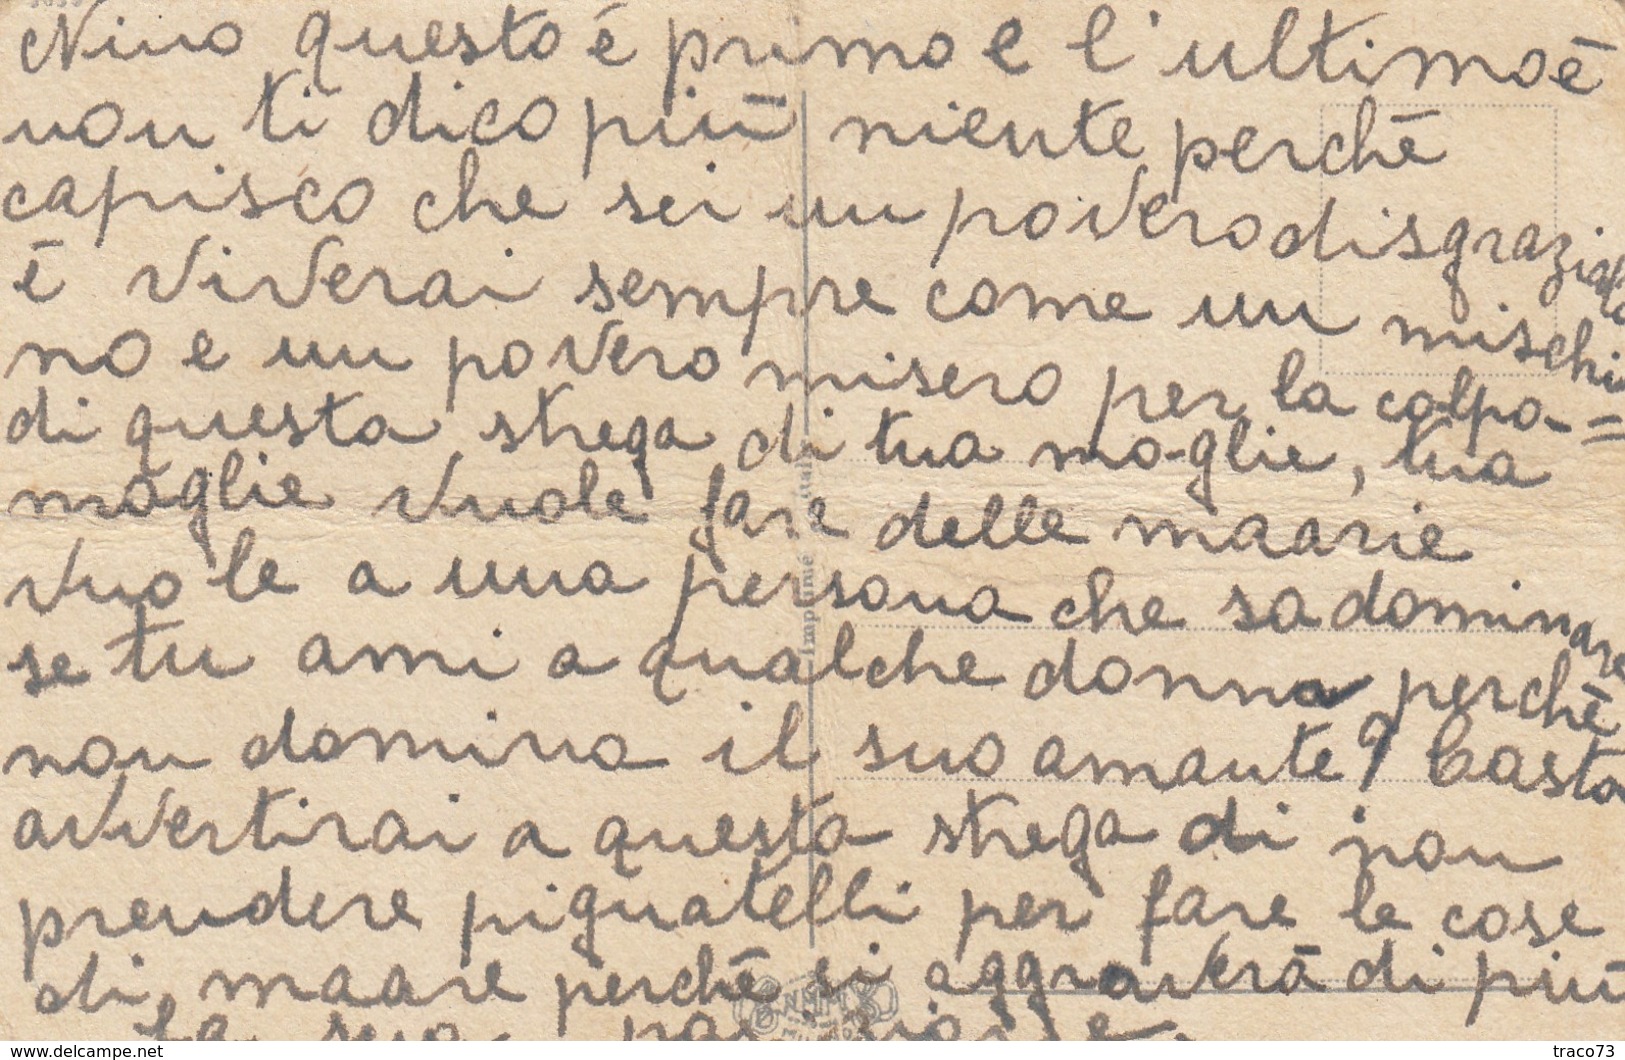 Nino questo é primo e l'ultimo é
non ti dico più niente perchè
capisco che sei un povero disgraziato
é viverai sempre come un mischi
no e un povero misero per la colpa=
di questa strega di tua moglie, tua
moglie vuole fare delle maarie
vuole a una persona che sa dominare
se tu ami a qualche donna perchè
non domina il suo amante? basta
avvertirai a questa strega di non
prendere pignatelli per fare le cose
di, maare perchè si aggraverà di più
la sua
Imprimé
traco73